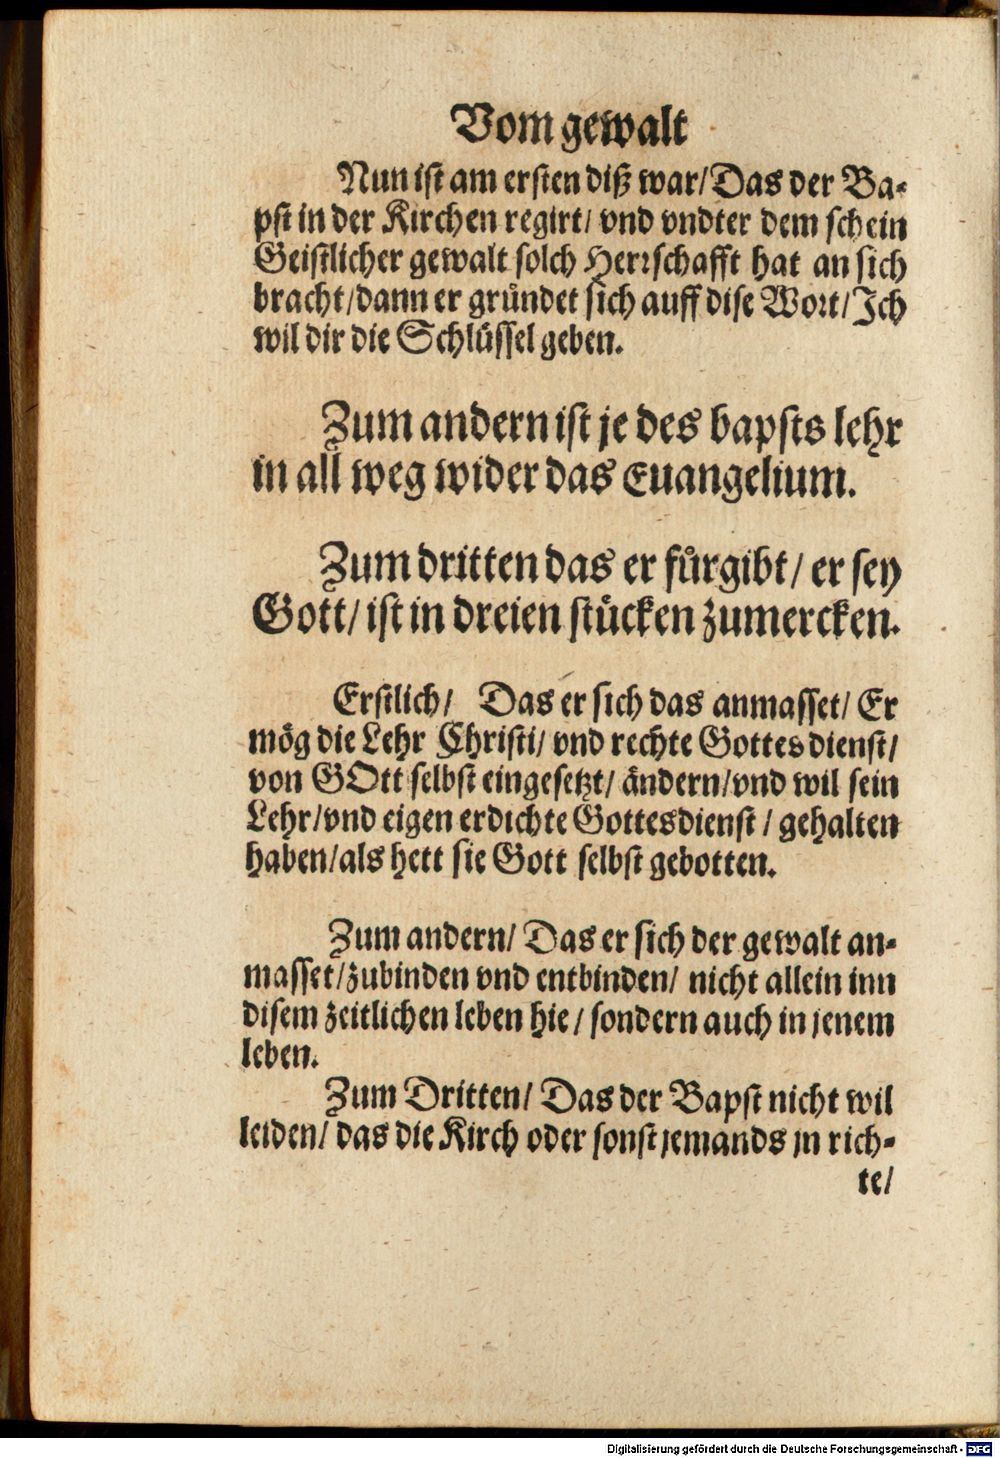 Vom gewalt
Nun ist am ersten diß war/ Das der Ba-
pst in der Kirchen regirt/ vnd vndter dem schein
Geistlicher gewalt solch Herrschafft hat an sich
bracht/dann er gründet sich auff dise Wort/Ich
wil dir die Schlüssel geben.
Zum andern ist je des bapsts lehr
in all weg wider das Euangelium.
Zum dritten das er fürgibt/ er sey
Gott/ ist in dreien stücken zumercken.
Erstlich/ Das er sich das anmasset/ Er
mög die Lehr Christi/ vnd rechte Gottesdienst/
von GOtt selbst eingesetzt/ ändern/vnd wil sein
Lehr/vnd eigen erdichte Gottesdienst/ gehalten
haben/als hett sie Gott selbst gebotten.
Zum andern/ Das er sich der gewalt an-
masset/zubinden vnd entbinden/ nicht allein inn
disem zeitlichen leben hie/ sondern auch in jenem
leben.
Zum Dritten/ Das der Bapst nicht wil
leiden/ das die Kirch oder sonst jemands jn rich-
te/
Digitalisierung gefördert durch die Deutsche Forschungsgemeinschaft - DFG